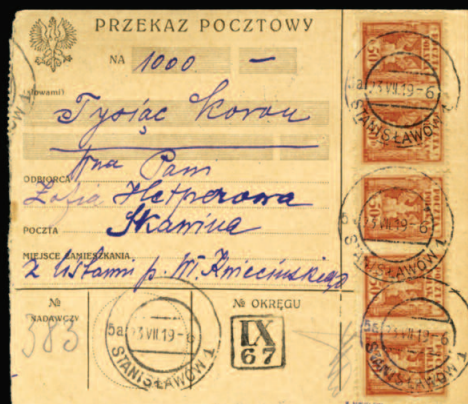 PRZEKAZ POCZTOWY
NA 1000 —
(słowami)
Tysiąc koron
Jna Pani
ODBIORCA
Zofia Hetperowa
POCZTA Skawina
MIEJSCE ZAMIESZKANIA
z listami p. Wł. Kniecińskiego
№ NADAWCZY
383
№ OKRĘGU
IX
67
5a 23 VII 19-6
STANISŁAWÓW 1
5a 23 VII 19-6
STANISŁAWÓW 1
VII 19-6
STANISŁAWÓW 1
5a 23 VII 19-6
STANISŁAWÓW 1